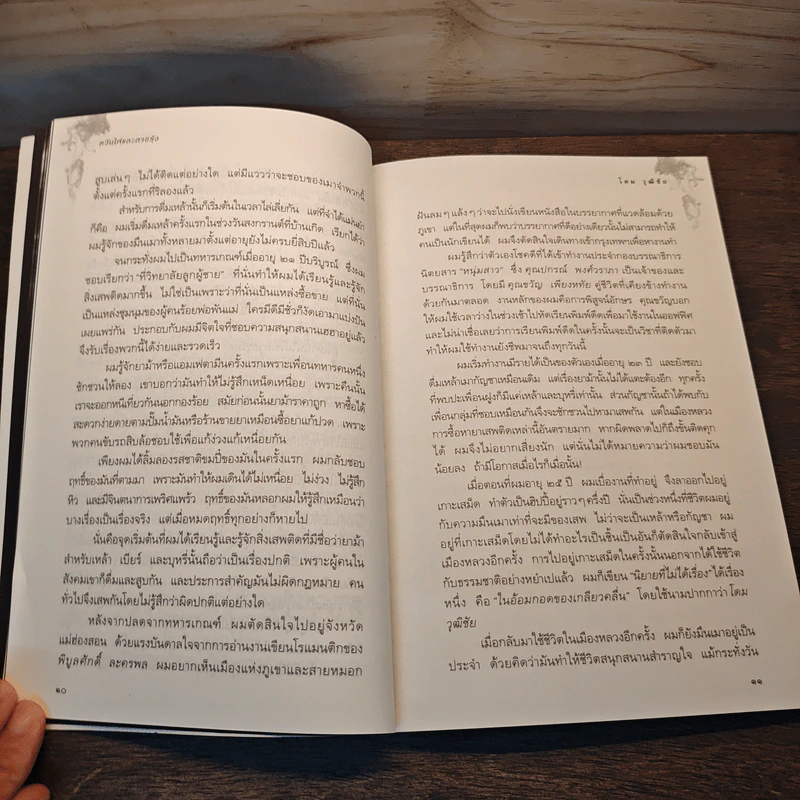 ควันไฟและสายรุ้ง
สูบเล่นๆ ไม่ได้ติดแต่อย่างใด แต่มีแววว่าจะชอบของเมาจำพวกนี้
ตั้งแต่ครั้งแรกที่ริลองแล้ว
สำหรับการดื่มเหล้านั้นก็เริ่มต้นในเวลาไล่เลี่ยกัน แต่ที่จำได้แม่นยำ
ก็คือ ผมเริ่มดื่มเหล้าครั้งแรกในช่วงวันสงกรานต์ที่บ้านเกิด เรียกได้ว่า
ผมรู้จักของมึนเมาทั้งหลายมาตั้งแต่อายุยังไม่ครบยี่สิบปี
จนกระทั่งผมไปเป็นทหารเกณฑ์เมื่ออายุ ๒๑ ปีบริบูรณ์ ซึ่งผม
ชอบเรียกว่า "ที่วิทยาลัยลูกผู้ชาย" ที่นั่นทำให้ผมได้เรียนรู้และรู้จัก
สิ่งเสพติดมากขึ้น ไม่ใช่เป็นเพราะว่าที่นั่นเป็นแหล่งซื้อขาย แต่ที่นั่น
เป็นแหล่งชุมนุมของผู้คนร้อยพ่อพันแม่ ใครมีดีมีชั่วก็งัดเอามาแบ่งปัน
เผยแพร่กัน ประกอบกับผมมีจิตใจที่ชอบความสนุกสนานเฮฮาอยู่แล้ว
จึงรับเรื่องพวกนี้ได้ง่ายและรวดเร็ว
ผมรู้จักยาม้าหรือแอมเฟตามีนครั้งแรกเพราะเพื่อนทหารคนหนึ่ง
ชักชวนให้ลอง เขาบอกว่ามันทำให้ไม่รู้สึกเหน็ดเหนื่อย เพราะคืนนั้น
เราจะออกหนีเที่ยวกันนอกกองร้อย สมัยก่อนนั้นยาม้าราคาถูก หาซื้อได้
สะดวกง่ายดายตามปั๊มน้ำมันหรือร้านขายยาเหมือนซื้อยาแก้ปวด เพราะ
พวกคนขับรถสิบล้อชอบใช้เพื่อแก้ง่วงแก้เหนื่อยกัน
เพียงผมได้ลิ้มลองรสชาติขมปี๋ของมันในครั้งแรก ผมกลับชอบ
ฤทธิ์ของมันที่ตามมา เพราะมันทำให้ผมเดินได้ไม่เหนื่อย ไม่ง่วง ไม่รู้สึก
หิว และมีจินตนาการเพริศแพร้ว ฤทธิ์ของมันหลอกผมให้รู้สึกเหมือนว่า
บางเรื่องเป็นเรื่องจริง แต่เมื่อหมดฤทธิ์ทุกอย่างก็หายไป
นั่นคือจุดเริ่มต้นที่ผมได้เรียนรู้และรู้จักสิ่งเสพติดที่มีชื่อว่ายาม้า
สำหรับเหล้า เบียร์ และบุหรี่นั้นถือว่าเป็นเรื่องปกติ เพราะผู้คนใน
สังคมเขาก็ดื่มและสูบกัน และประการสำคัญมันไม่ผิดกฎหมาย คน
ทั่วไปจึงเสพกันโดยไม่รู้สึกว่าผิดปกติแต่อย่างใด
หลังจากปลดจากทหารเกณฑ์ ผมตัดสินใจไปอยู่จังหวัด
แม่ฮ่องสอน ด้วยแรงบันดาลใจจากการอ่านงานเขียนโรแมนติกของ
พิบูลศักดิ์ ละครพล ผมอยากเห็นเมืองแห่งภูเขาและสายหมอก
๑๐
โดม วุฒิชัย
ฝันลมๆ แล้งๆ ว่าจะไปนั่งเขียนหนังสือในบรรยากาศที่แวดล้อมด้วย
ภูเขา แต่ในที่สุดผมก็พบว่าบรรยากาศที่ดีอย่างเดียวนั้นไม่สามารถทำให้
คนเป็นนักเขียนได้ ผมจึงตัดสินใจเดินทางเข้ากรุงเทพฯเพื่อหางานทำ
ผมรู้สึกว่าตัวเองโชคดีที่ได้เข้าทำงานประจำกองบรรณาธิการ
นิตยสาร "หนุ่มสาว" ซึ่ง คุณปกรณ์ พงศ์วราภา เป็นเจ้าของและ
บรรณาธิการ โดยมี คุณขวัญ เพียงหทัย คู่ชีวิตที่เคียงข้างทำงาน
ด้วยกันมาตลอด งานหลักของผมคือการพิสูจน์อักษร คุณขวัญบอก
ให้ผมใช้เวลาว่างในช่วงเช้าไปหัดเรียนพิมพ์ดีดเพื่อมาใช้งานในออฟฟิศ
และไม่น่าเชื่อเลยว่าการเรียนพิมพ์ดีดในครั้งนั้นจะเป็นวิชาที่ติดตัวมา
ทำให้ผมใช้ทำงานยังชีพมาจนถึงทุกวันนี้
ผมเริ่มทำงานมีรายได้เป็นของตัวเองเมื่ออายุ ๒๓ ปี และยังชอบ
ดื่มเหล้าเมากัญชาเหมือนเดิม แต่เรื่องยาม้านั้นไม่ได้แตะต้องอีก ทุกครั้ง
ที่พบปะเพื่อนฝูงก็มีแค่เหล้าและบุหรี่เท่านั้น ส่วนกัญชานั้นถ้าได้พบกับ
เพื่อนกลุ่มที่ชอบเหมือนกันจึงจะชักชวนไปหามาเสพกัน แต่ในเมืองหลวง
การซื้อหายาเสพติดเหล่านี้อันตรายมาก หากผิดพลาดไปก็ถึงขั้นติดคุก
ได้ ผมจึงไม่อยากเสี่ยงนัก แต่นั่นไม่ได้หมายความว่าผมชอบมัน
น้อยลง ถ้ามีโอกาสเมื่อไรก็เมื่อนั้น!
เมื่อตอนที่ผมอายุ ๒๕ ปี ผมเบื่องานที่ทำอยู่ จึงลาออกไปอยู่
เกาะเสม็ด ทำตัวเป็นฮิปปี้อยู่ราวๆครึ่งปี นั่นเป็นช่วงหนึ่งที่ชีวิตผมอยู่
กับความมึนเมาเท่าที่จะมีของเสพ ไม่ว่าจะเป็นเหล้าหรือกัญชา ผม
อยู่ที่เกาะเสม็ดโดยไม่ได้ทำอะไรเป็นชิ้นเป็นอันก็ตัดสินใจกลับเข้าสู่
เมืองหลวงอีกครั้ง การไปอยู่เกาะเสม็ดในครั้งนั้นนอกจากได้ใช้ชีวิต
กับธรรมชาติอย่างหยำเปแล้ว ผมก็เขียน "นิยายที่ไม่ได้เรื่อง" ได้เรื่อง
หนึ่ง คือ "ในอ้อมกอดของเกลียวคลื่น" โดยใช้นามปากกาว่า โดม
วุฒิชัย
เมื่อกลับมาใช้ชีวิตในเมืองหลวงอีกครั้ง ผมก็ยังมึนเมาอยู่เป็น
ประจำ ด้วยคิดว่ามันทำให้ชีวิตสนุกสนานสำราญใจ แม้กระทั่งวัน
๑๑